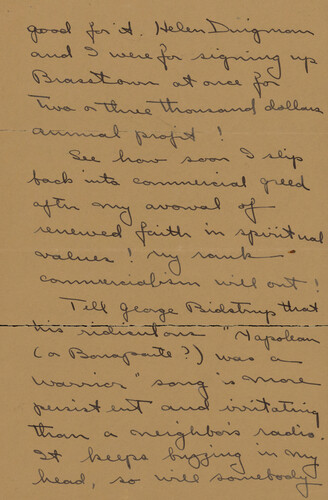 good for it. Helen Dingman
and I were for signing up
Brasstown at once for
two or three thousand dollars
annual profit!
See how soon I slip
back into commercial greed
after my avowal of
renewed faith in spiritual
values! My rank
commercialism will out!
Tell George Bidstrup that
his ridiculous "Napolean
(or Bonaparte?) was a
warrior" song is more
persistent and irritating
than a neighbor's radio.
It keeps buzzing in my
head, so will somebody